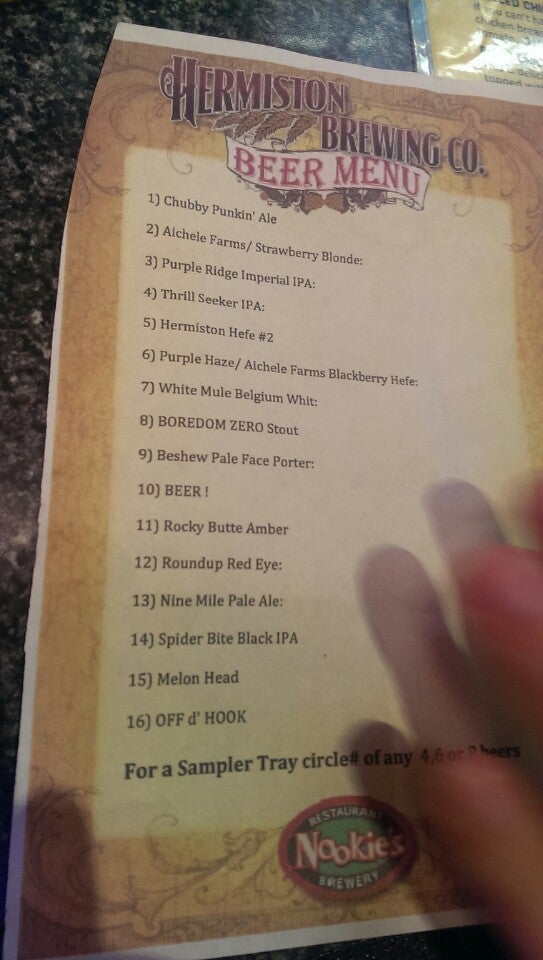 HERMISTON
BREWING CO.
BEER MENU
1) Chubby Punkin' Ale
2) Aichele Farms/ Strawberry Blonde:
3) Purple Ridge Imperial IPA:
4) Thrill Seeker IPA:
5) Hermiston Hefe #2
6) Purple Haze/ Aichele Farms Blackberry Hefe:
7) White Mule Belgium Whit:
8) BOREDOM ZERO Stout
9) Beshew Pale Face Porter:
10) BEER !
11) Rocky Butte Amber
12) Roundup Red Eye:
13) Nine Mile Pale Ale:
14) Spider Bite Black IPA
15) Melon Head
16) OFF d' HOOK
For a Sampler Tray circle# of any 4,6 or 8 beers
RESTAURANT
Nookie's
BREWERY
If you can't
chicken